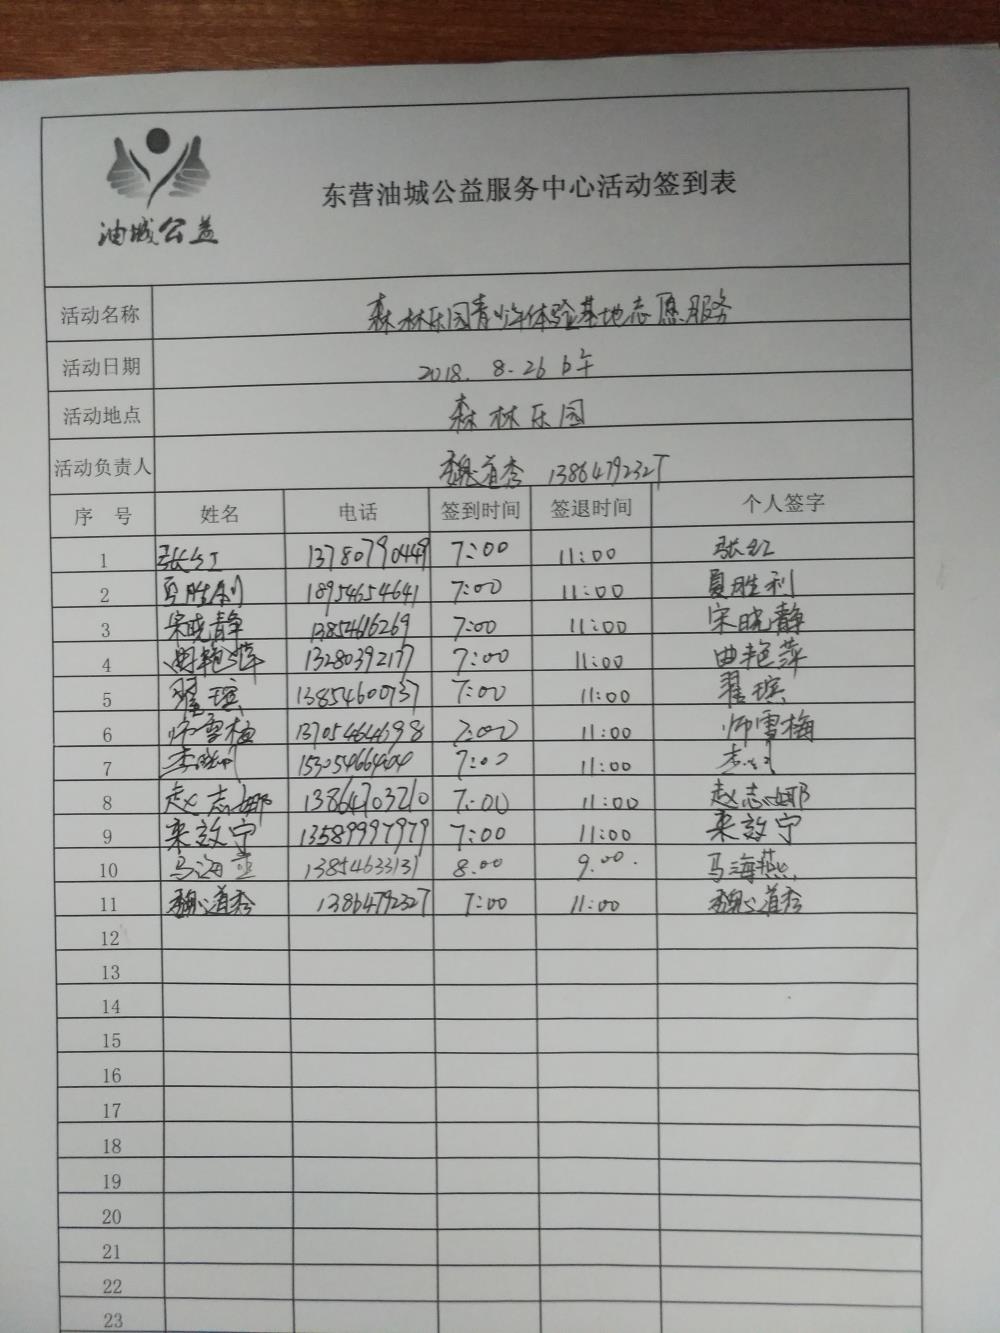 油城公益
东营油城公益服务中心活动签到表
活动名称 森林乐园青少年体验基地志愿服务
活动日期 2018. 8.26
活动地点 森林乐园
活动负责人 魏道秀 13864792327
序 号 姓名 电话 签到时间 签退时间 个人签字
1 张红 13780790449 7:00 11:00 张红
2 夏胜利 18954654641 7:00 11:00 夏胜利
3 宋晓静 13854616269 7:00 11:00 宋晓静
4 曲艳萍 13280392177 7:00 11:00 曲艳萍
5 翟瑸 13854600737 7:00 11:00 翟瑸
6 师雪梅 13705464698 7:00 11:00 师雪梅
7 7:00 11:00
8 赵志娜 13864703210 7:00 11:00 赵志娜
9 来效宁 13589997979 7:00 11:00 来效宁
10 马海燕 13854633131 8.00 9.00. 马海燕
11 魏道秀 13864792327 7:00 11:00 魏道秀
12
13
14
15
16
17
18
19
20
21
22
23